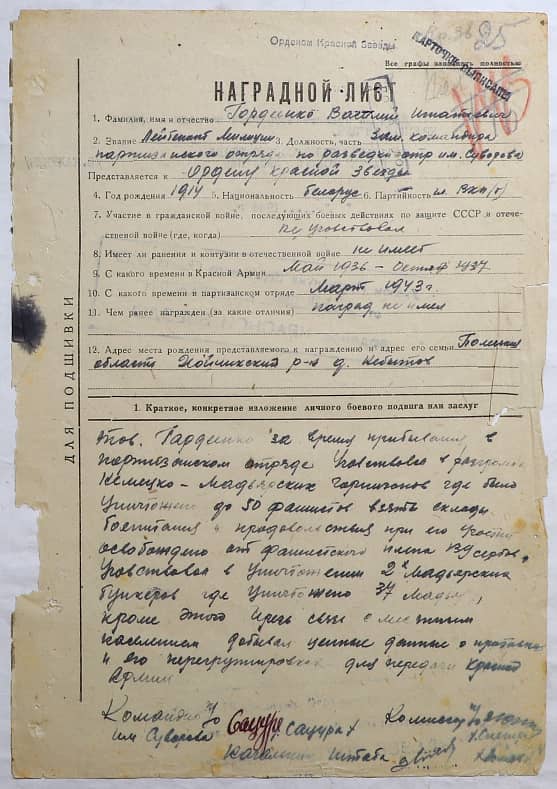 Орденом Красной Звезды
25
Все графы заполнять полностью
КАРТОЧКА ВЫПИСАНА
НАГРАДНОЙ ЛИСТ
1. Фамилия, имя и отчество Гордиенко Василий Игнатович
2. Звание Лейтенант Милиции 3. Должность, часть Зам. командира
партизанского отряда по разведке отр им. Суворова
Представляется к Ордену Красной Звезды
4. Год рождения 1914 5. Национальность белорус 6. Партийность чл. ВКП(б)
7. Участие в гражданской войне, последующих боевых действиях по защите СССР и отече-
ственной войне (где, когда) не участвовал
8. Имеет ли ранения и контузии в отечественной войне не имеет
9. С какого времени в Красной Армии Май 1936 – 1937
10. С какого времени в партизанском отряде Март 1943 г.
11. Чем ранее награжден (за какие отличия) наград не имел
12. Адрес места рождения представляемого к награждению и адрес его семьи
области р-н д.
ДЛЯ ПОДШИВКИ
1. Краткое, конкретное изложение личного боевого подвига или заслуг
тов. за время прибывания в
партизанском отряде участвовал в
Немецко – Мадьярских гарнизонов где было
уничтожено до 50 фашистов взяты склады
и продовольствия при его участии
освобождено от фашистского плена
участвовал в уничтожении 2х Мадьярских
бункеров где уничтожено 37 Мадьяр,
кроме этого через связь с местным
населением добывал ценные данные о противнике
и его перегруппировках для передачи Красной
Армии
Командир
им Суворова Сацура Комиссар
начальник штаба